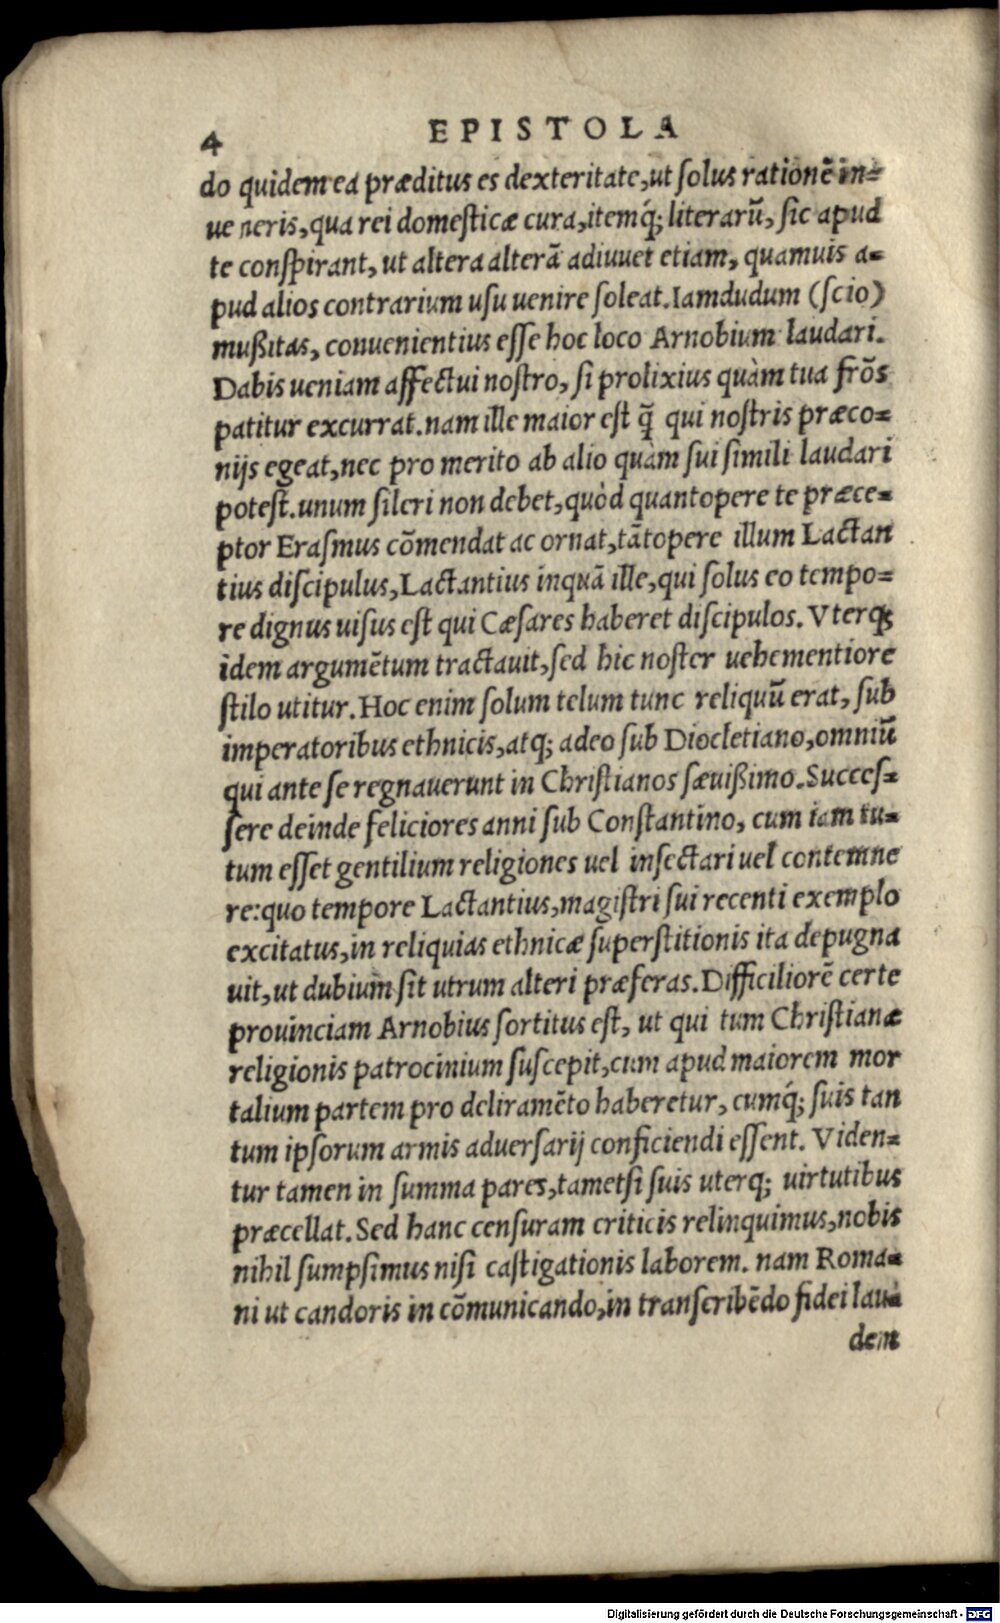 4 EPISTOLA
do quidem ea præditus es dexteritate, ut ſolus rationē in=
ue neris, qua rei domeſticæ cura, itemq́; literarū, ſic apud
te conſpirant, ut altera alterā adiuuet etiam, quamuis a=
pud alios contrarium uſu uenire ſoleat. Iamdudum (ſcio)
mußitas, conuenientius eſſe hoc loco Arnobium laudari.
Dabis ueniam affectui noſtro, ſi prolixius quàm tua frōs
patitur excurrat. nam ille maior eſt q̄ qui noſtris præco=
nijs egeat, nec pro merito ab alio quam ſui ſimili laudari
poteſt. unum ſileri non debet, quòd quantopere te præce=
ptor Eraſmus cōmendat ac ornat, tātopere illum Lactan
tius diſcipulus, Lactantius inquā ille, qui ſolus eo tempo=
re dignus uiſus eſt qui Cæſares haberet diſcipulos. Vterq;
idem argumētum tractauit, ſed hic noſter uehementiore
ſtilo utitur. Hoc enim ſolum telum tunc reliquū erat, ſub
imperatoribus ethnicis, atq; adeo ſub Diocletiano, omniū
qui ante ſe regnauerunt in Chriſtianos ſæuißimo. Succeſ=
ſere deinde feliciores anni ſub Conſtantino, cum iam tu=
tum eſſet gentilium religiones uel inſectari uel contemne
re: quo tempore Lactantius, magiſtri ſui recenti exemplo
excitatus, in reliquias ethnicæ ſuperſtitionis ita depugna
uit, ut dubium ſit utrum alteri præferas. Difficiliorē certe
prouinciam Arnobius ſortitus eſt, ut qui tum Chriſtianæ
religionis patrocinium ſuſcepit, cum apud maiorem mor
talium partem pro deliramēto haberetur, cumq́; ſuis tan
tum ipſorum armis aduerſarij conficiendi eſſent. Viden=
tur tamen in ſumma pares, tametſi ſuis uterq; uirtutibus
præcellat. Sed hanc cenſuram criticis relinquimus, nobis
nihil ſumpſimus niſi caſtigationis laborem. nam Roma=
ni ut candoris in cōmunicando, in tranſcribēdo fidei lau=
dem
Digitalisierung gefördert durch die Deutsche Forschungsgemeinschaft - DFG